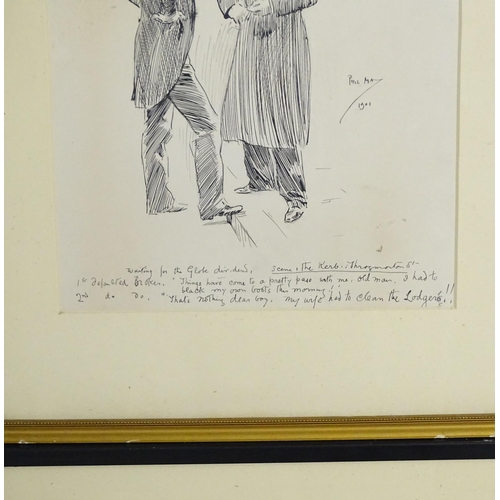 Phil May
1901
Waiting for the Globe dividend, Scene: the Kerb: Throgmorton St
1st Defaulted Broker. "Things have come to a pretty pass with me, old man, I had to
black my own boots this morning!
2nd do Do. "That's nothing dear boy. My wife had to clean the Lodger's!!